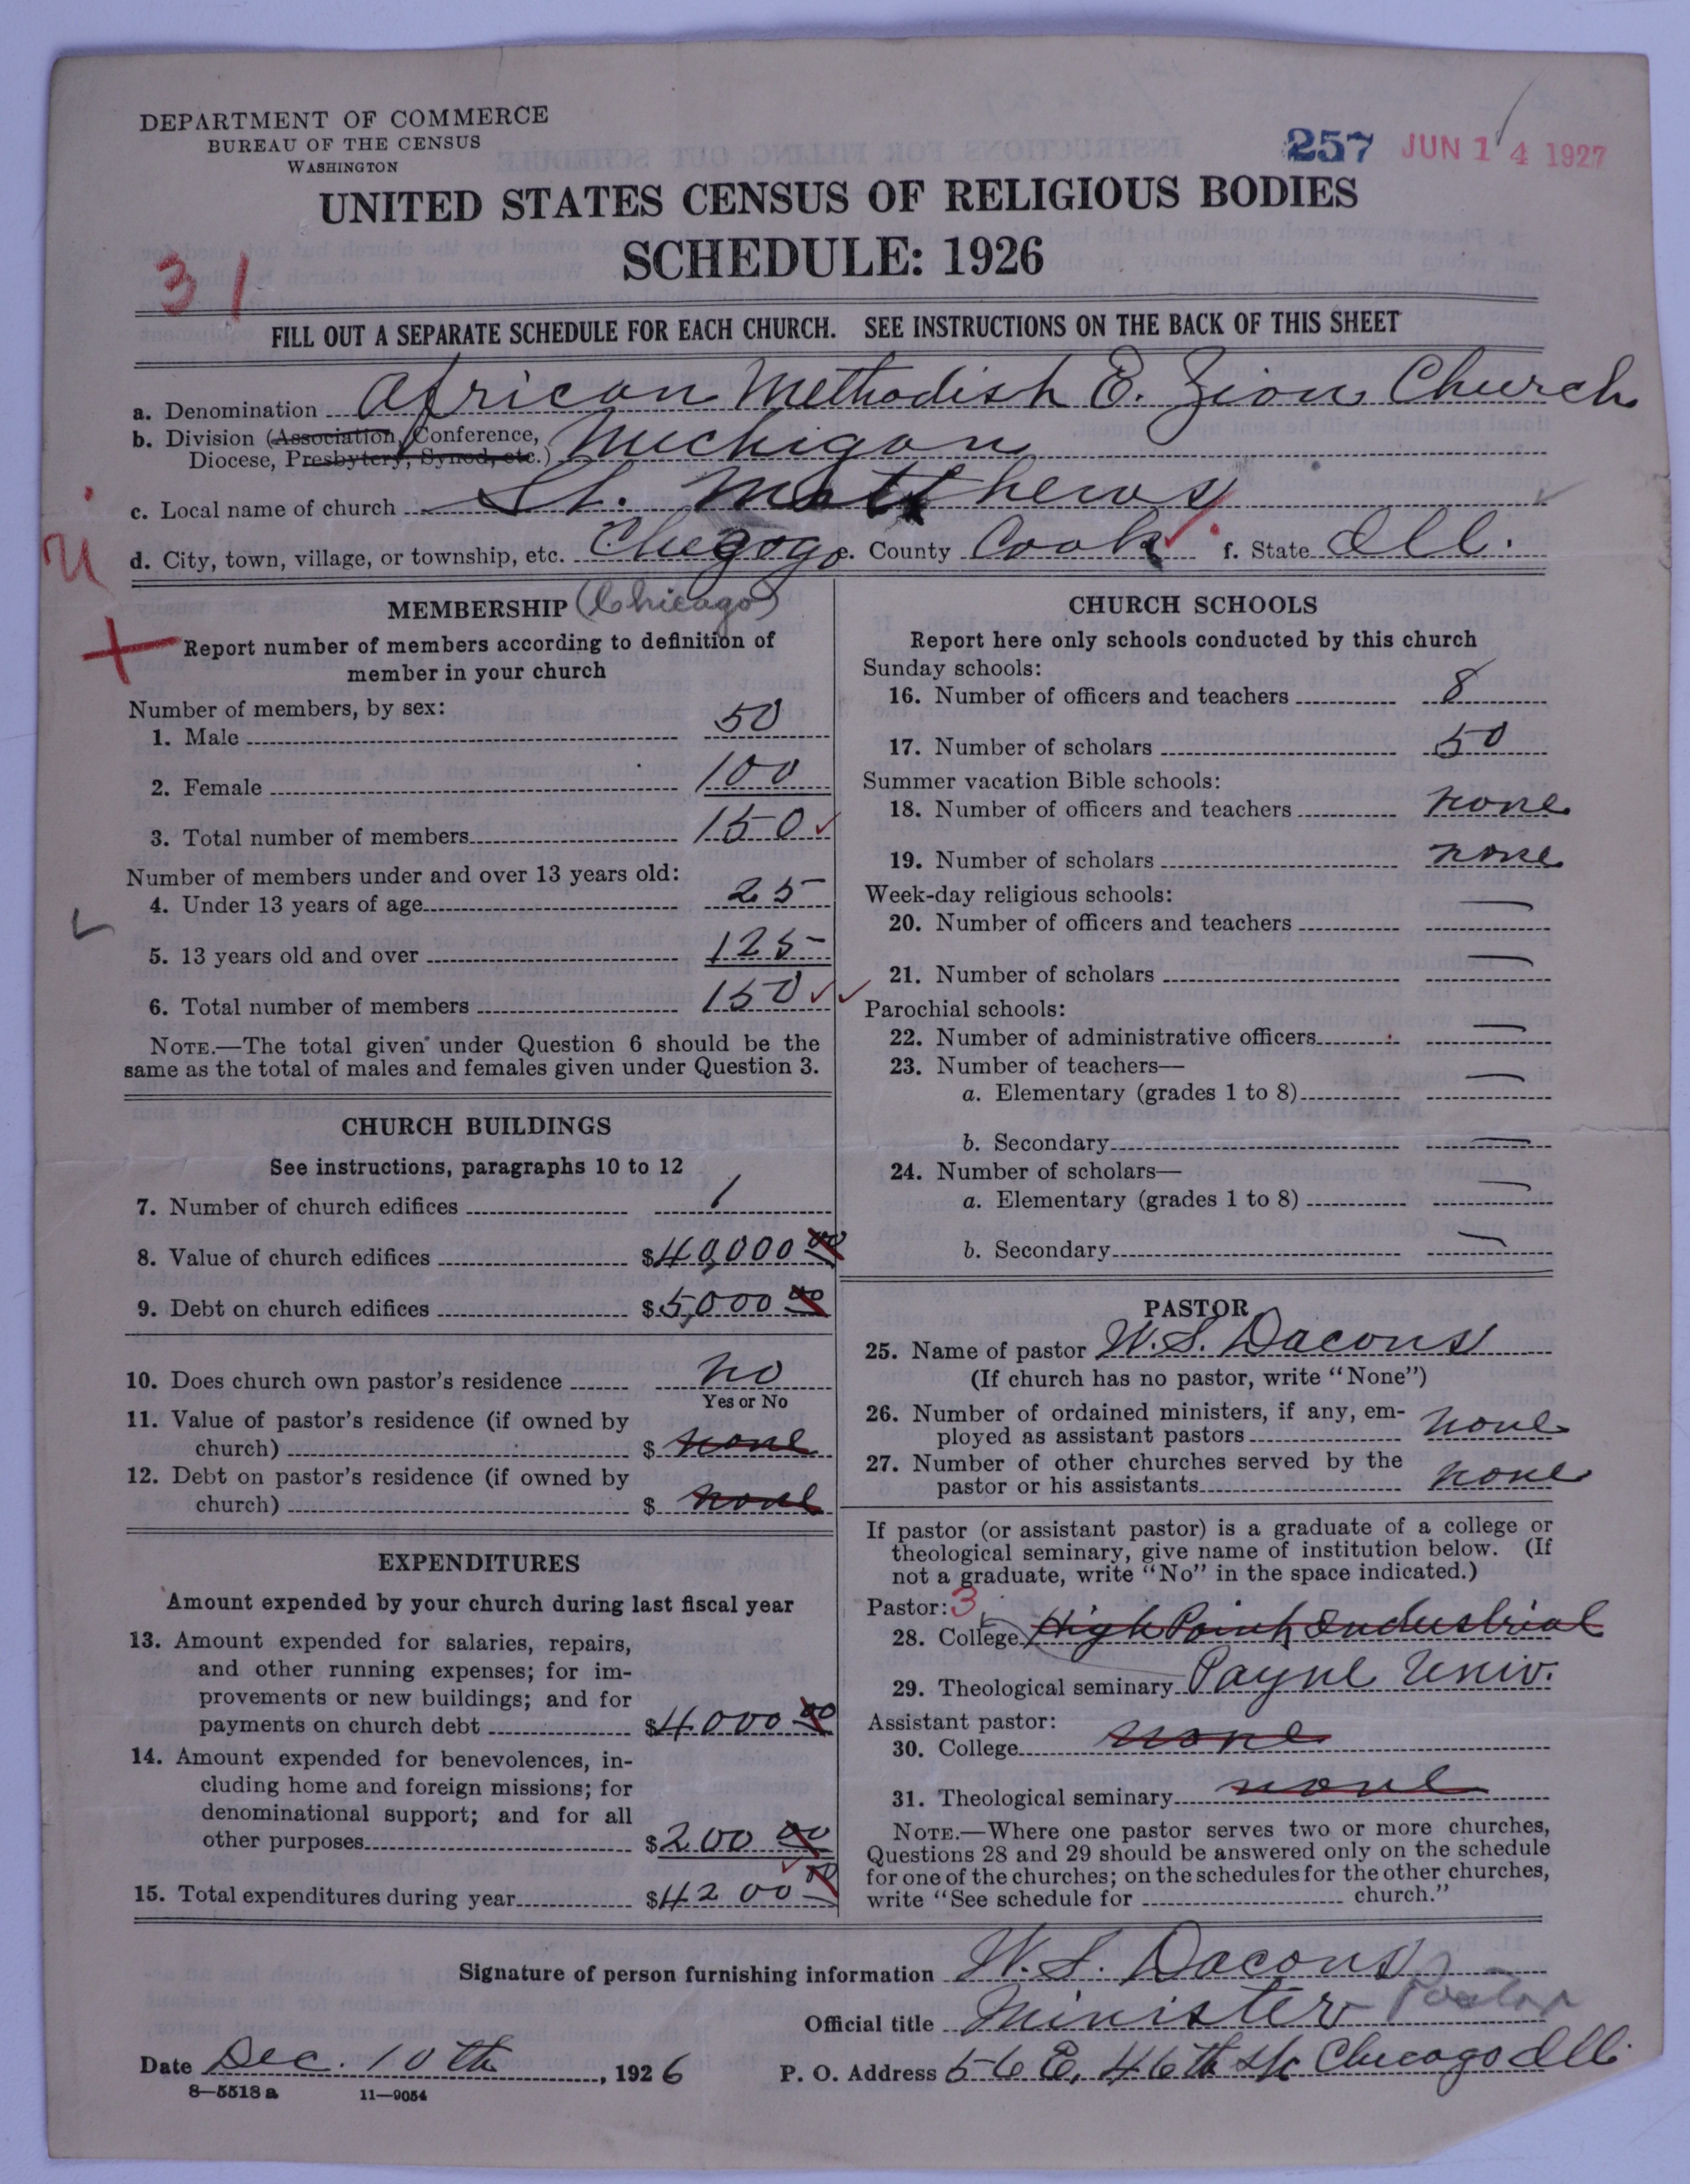 DEPARTMENT OF COMMERCE
BUREAU OF THE CENSUS
WASHINGTON
257 JUN 14 1927
UNITED STATES CENSUS OF RELIGIOUS BODIES
SCHEDULE: 1926
31
FILL OUT A SEPARATE SCHEDULE FOR EACH CHURCH. SEE INSTRUCTIONS ON THE BACK OF THIS SHEET
a. Denomination African Methodish E. Zion Church
b. Division (Association, Conference,
Diocese, Presbytery, Synod, etc.) Michigan
c. Local name of church St. Matthews
d. City, town, village, or township, etc. Chegogo e. County Cook f. State Ill.
MEMBERSHIP (Chicago)
Report number of members according to definition of
member in your church
Number of members, by sex:
1. Male 50
2. Female 100
3. Total number of members 150
Number of members under and over 13 years old:
4. Under 13 years of age 25
5. 13 years old and over 125
6. Total number of members 150
NOTE.—The total given under Question 6 should be the
same as the total of males and females given under Question 3.
CHURCH BUILDINGS
See instructions, paragraphs 10 to 12
7. Number of church edifices 1
8. Value of church edifices $40,000 00
9. Debt on church edifices $5,000 00
10. Does church own pastor's residence no
Yes or No
11. Value of pastor's residence (if owned by
church) $ none
12. Debt on pastor's residence (if owned by
church) $ none
EXPENDITURES
Amount expended by your church during last fiscal year
13. Amount expended for salaries, repairs,
and other running expenses; for im-
provements or new buildings; and for
payments on church debt $4000 00
14. Amount expended for benevolences, in-
cluding home and foreign missions; for
denominational support; and for all
other purposes $200 00
15. Total expenditures during year $4200 00
CHURCH SCHOOLS
Report here only schools conducted by this church
Sunday schools:
16. Number of officers and teachers 8
17. Number of scholars 50
Summer vacation Bible schools:
18. Number of officers and teachers none
19. Number of scholars none
Week-day religious schools:
20. Number of officers and teachers —
21. Number of scholars —
Parochial schools:
22. Number of administrative officers —
23. Number of teachers—
a. Elementary (grades 1 to 8) —
b. Secondary —
24. Number of scholars—
a. Elementary (grades 1 to 8) —
b. Secondary —
PASTOR
25. Name of pastor W. S. Dacons
(If church has no pastor, write "None")
26. Number of ordained ministers, if any, em-
ployed as assistant pastors none
27. Number of other churches served by the
pastor or his assistants none
If pastor (or assistant pastor) is a graduate of a college or
theological seminary, give name of institution below. (If
not a graduate, write "No" in the space indicated.)
Pastor: 3
28. College High Point Industrial
29. Theological seminary Payne Univ.
Assistant pastor:
30. College none
31. Theological seminary none
NOTE.—Where one pastor serves two or more churches,
Questions 28 and 29 should be answered only on the schedule
for one of the churches; on the schedules for the other churches,
write "See schedule for church."
Signature of person furnishing information W. S. Dacons
Official title Minister Pastor
Date Dec. 10th, 1926 P. O. Address 56 E. 46th St Chicago Ill.
8—5518a 11—9054